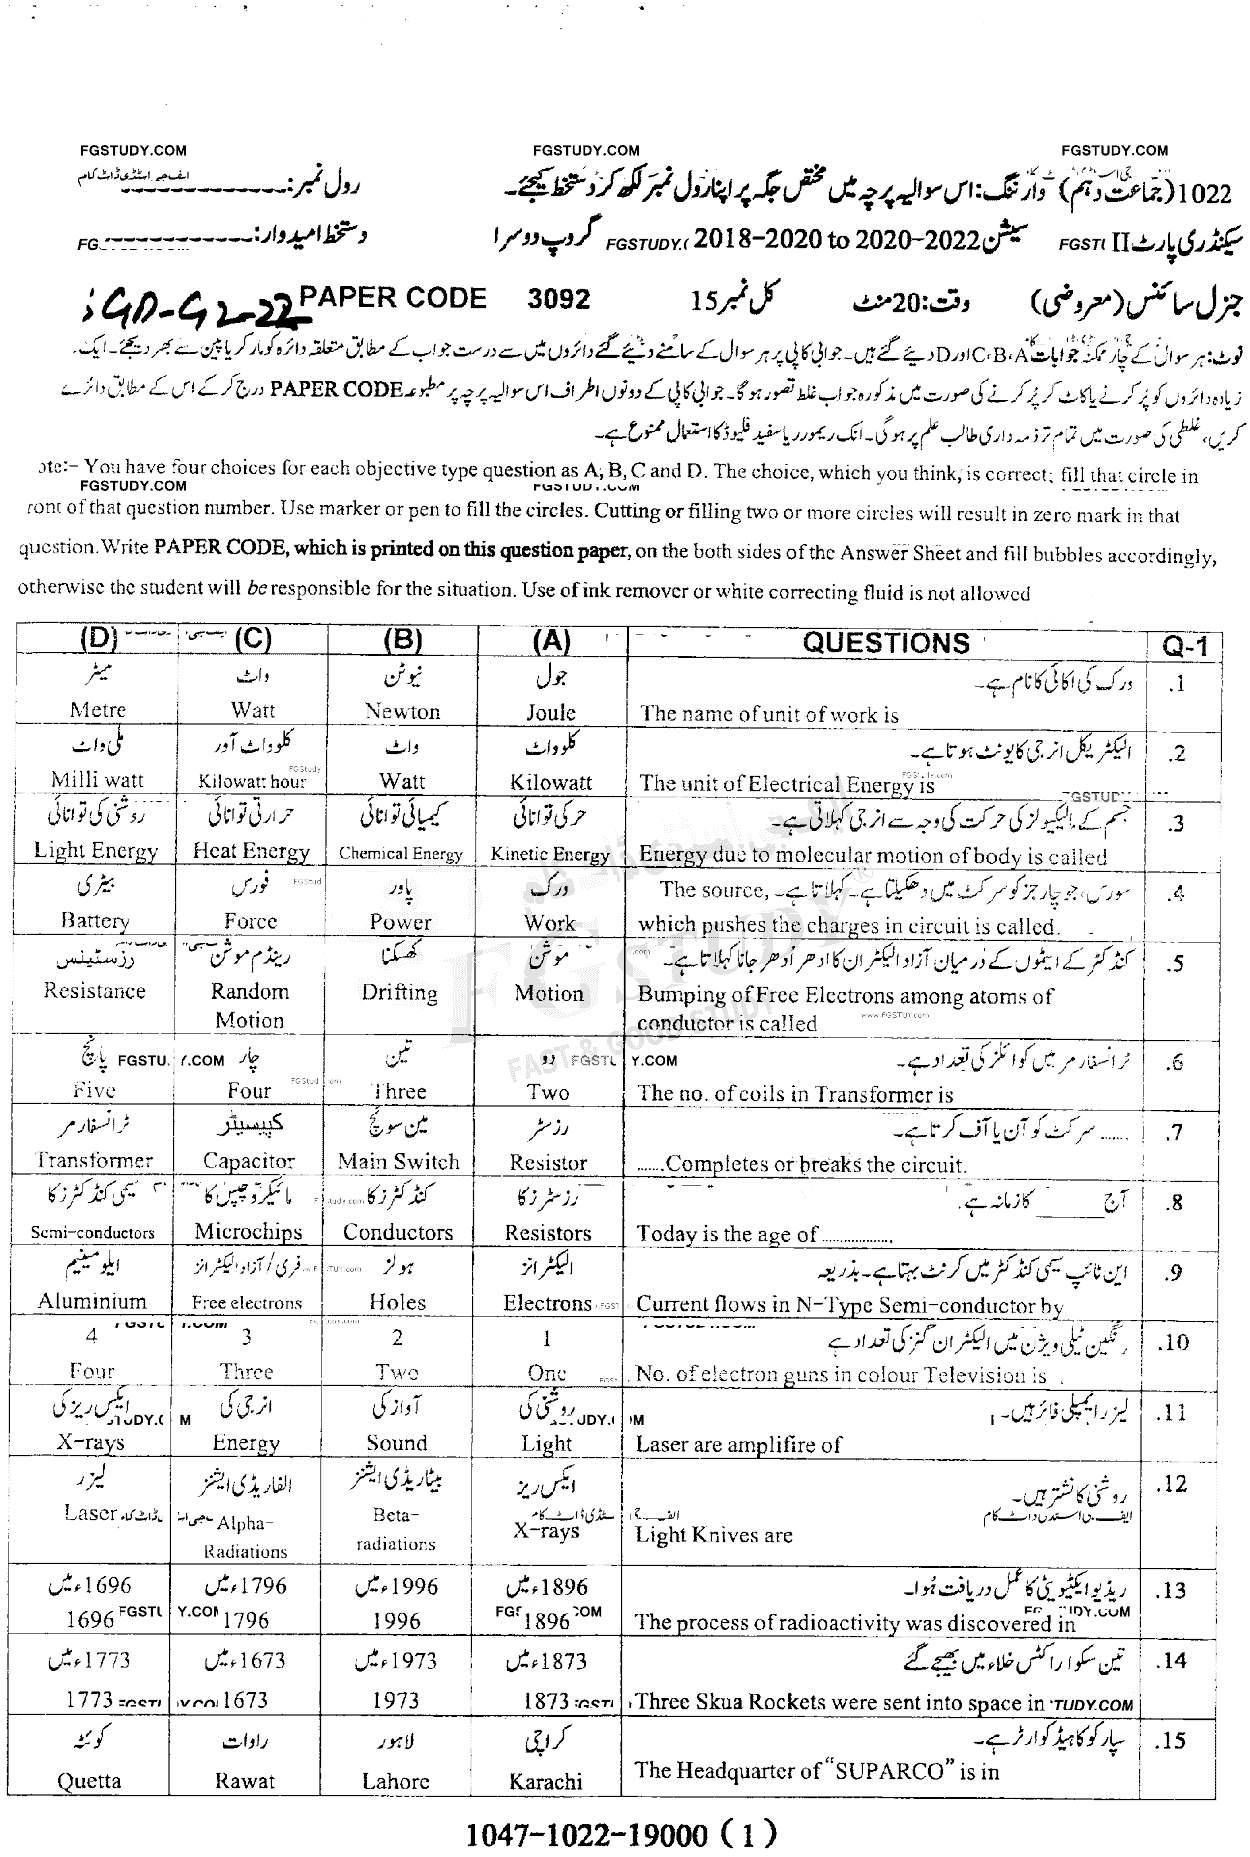 FGSTUDY.COM FGSTUDY.COM FGSTUDY.COM
1022 (جماعت دہم) وارننگ: اس سوالیہ پرچہ میں مختص جگہ پر اپنا رول نمبر لکھ کر دستخط کیجئے۔ رول نمبر: ایف جی اسٹڈی ڈاٹ کام
سیکنڈری پارٹ II سیشن 2018-2020 to 2020-2022 FGSTUDY. گروپ دوسرا دستخط امیدوار: FG
جنرل سائنس (معروضی) وقت: 20 منٹ کل نمبر 15 PAPER CODE 3092 GD-G2-22
نوٹ: ہر سوال کے چار ممکنہ جوابات A،B،C اور D دیئے گئے ہیں۔ جوابی کاپی پر ہر سوال کے سامنے دیئے گئے دائروں میں سے درست جواب کے مطابق متعلقہ دائرہ کو مارکر یا پین سے بھر دیجئے۔ ایک
زیادہ دائروں کو پُر کرنے یا کاٹ کر پُر کرنے کی صورت میں مذکورہ جواب غلط تصور ہوگا۔ جوابی کاپی کے دونوں اطراف اس سوالیہ پرچہ پر مطبوعہ PAPER CODE درج کر کے اس کے مطابق دائرے
کریں، غلطی کی صورت میں تمام تر ذمہ داری طالب علم پر ہوگی۔ انک ریمور یا سفید فلیوڈ کا استعمال ممنوع ہے۔
ote:- You have four choices for each objective type question as A, B, C and D. The choice, which you think, is correct; fill that circle in
FGSTUDY.COM FGSTUDY.COM
ront of that question number. Use marker or pen to fill the circles. Cutting or filling two or more circles will result in zero mark in that
question. Write PAPER CODE, which is printed on this question paper, on the both sides of the Answer Sheet and fill bubbles accordingly,
otherwise the student will be responsible for the situation. Use of ink remover or white correcting fluid is not allowed
(D) (C) (B) (A) QUESTIONS Q-1
میٹر واٹ نیوٹن جول ورک کی اکائی کا نام ہے۔ .1
Metre Watt Newton Joule The name of unit of work is
ملی واٹ کلو واٹ آور واٹ کلو واٹ الیکٹریکل انرجی کا یونٹ ہوتا ہے۔ .2
Milli watt Kilowatt hour Watt Kilowatt The unit of Electrical Energy is
روشنی کی توانائی حرارتی توانائی کیمیائی توانائی حرکی توانائی جسم کے مالیکیولز کی حرکت کی وجہ سے انرجی کہلاتی ہے۔ .3
Light Energy Heat Energy Chemical Energy Kinetic Energy Energy due to molecular motion of body is called
بیٹری فورس پاور ورک سورس، جو چارجز کو سرکٹ میں دھکیلتا ہے۔ کہلاتا ہے۔ The source, .4
Battery Force Power Work which pushes the charges in circuit is called.
رزسٹینس رینڈم موشن کھسکنا موشن کنڈکٹر کے ایٹموں کے درمیان آزاد الیکٹران کا ادھر اُدھر جانا کہلاتا ہے۔ .5
Resistance Random Drifting Motion Bumping of Free Electrons among atoms of
Motion conductor is called www.FGSTUY.COM
پانچ چار تین دو ٹرانسفارمر میں کوائلز کی تعداد ہے۔ .6
Five Four Three Two The no. of coils in Transformer is
ٹرانسفارمر کپیسیٹر مین سوئچ رزسٹر ...... سرکٹ کو آن یا آف کرتا ہے۔ .7
Transformer Capacitor Main Switch Resistor ......Completes or breaks the circuit.
سیمی کنڈکٹرز کا مائیکروچپس کا کنڈکٹرز کا رزسٹرز کا آج ______ کا زمانہ ہے۔ .8
Semi-conductors Microchips Conductors Resistors Today is the age of..................
ایلومینیم فری/آزاد الیکٹرانز ہولز الیکٹرانز این ٹائپ سیمی کنڈکٹر میں کرنٹ بہتا ہے۔ بذریعہ .9
Aluminium Free electrons Holes Electrons Current flows in N-Type Semi-conductor by
4 3 2 1 رنگین ٹیلی ویژن میں الیکٹران گنز کی تعداد ہے .10
Four Three Two One No. of electron guns in colour Television is .
ایکس ریز کی انرجی کی آواز کی روشنی کی لیزر ایمپلی فائر ہیں۔ .11
X-rays Energy Sound Light Laser are amplifire of
لیزر الفا ریڈی ایشنز بیٹا ریڈی ایشنز ایکس ریز روشنی کا نشتر ہیں۔ .12
Laser Alpha- Beta- X-rays Light Knives are
Radiations radiations
1696ء میں 1796ء میں 1996ء میں 1896ء میں ریڈیو ایکٹیویٹی کا عمل دریافت ہُوا۔ .13
1696 1796 1996 1896 The process of radioactivity was discovered in
1773ء میں 1673ء میں 1973ء میں 1873ء میں تین سکوا راکٹس خلاء میں بھیجے گئے .14
1773 1673 1973 1873 Three Skua Rockets were sent into space in
کوئٹہ راوات لاہور کراچی سپارکو کا ہیڈ کوارٹر ہے۔ .15
Quetta Rawat Lahore Karachi The Headquarter of “SUPARCO” is in
FGSTUDY
FAST & GOOD STUDY
1047-1022-19000 (1)